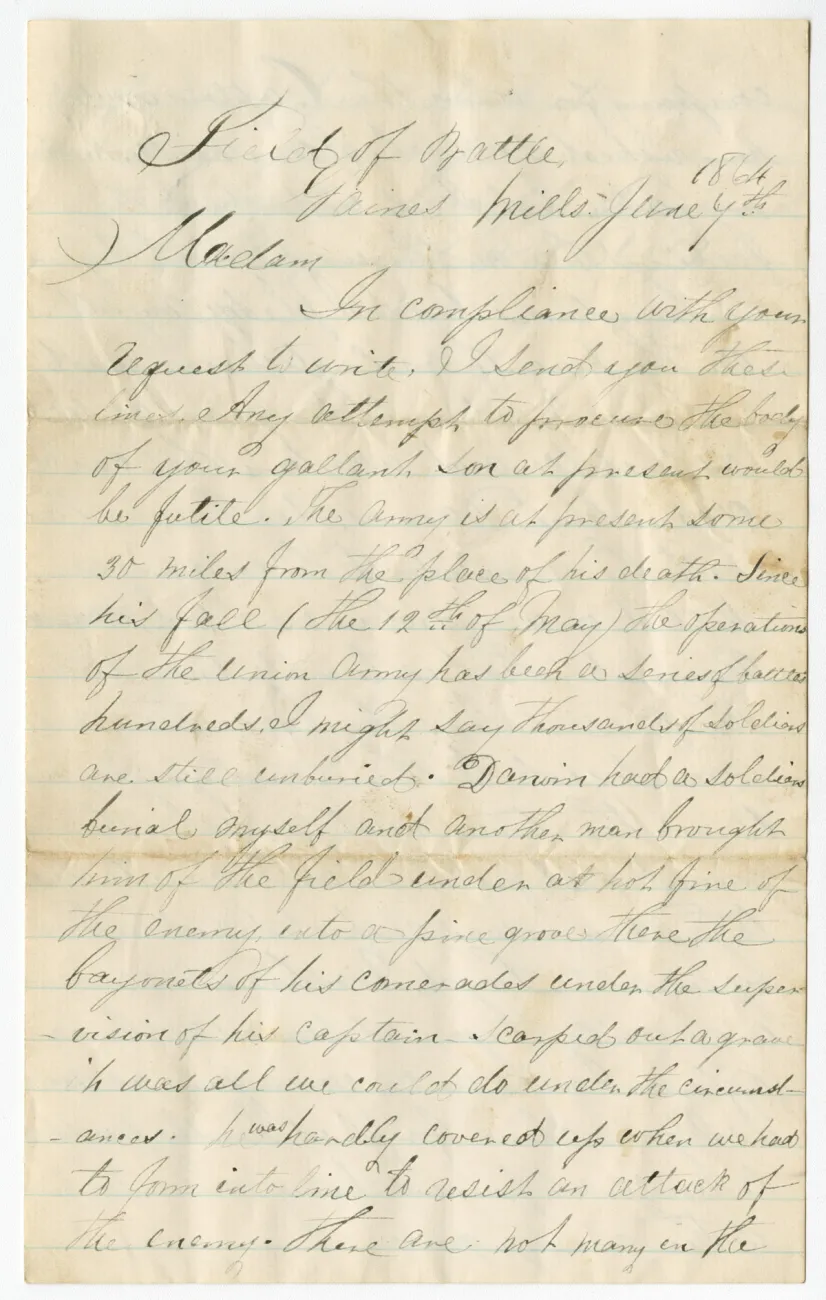 Field of Battle,
1864
Gaines Mills June 7th
Madam
In compliance with your
request to write, I send you these
lines. Any attempt to procure the body
of your gallant son at present would
be futile. The army is at present some
30 miles from the place of his death. Since
his fall (the 12th of May) the operations
of the Union Army has been a series of battles
hundreds, I might say thousands of soldiers
are still unburied. Darwin had a soldiers
burial myself and another man brought
him of the field under at hot fire of
the enemy into a pine grove there the
bayonets of his comerades under the super-
-vision of his captain scarped out a grave
it was all we could do under the circumst-
-ances. he was hardly covered up when we had
to form into line to resist an attack of
the enemy. There are not many in the